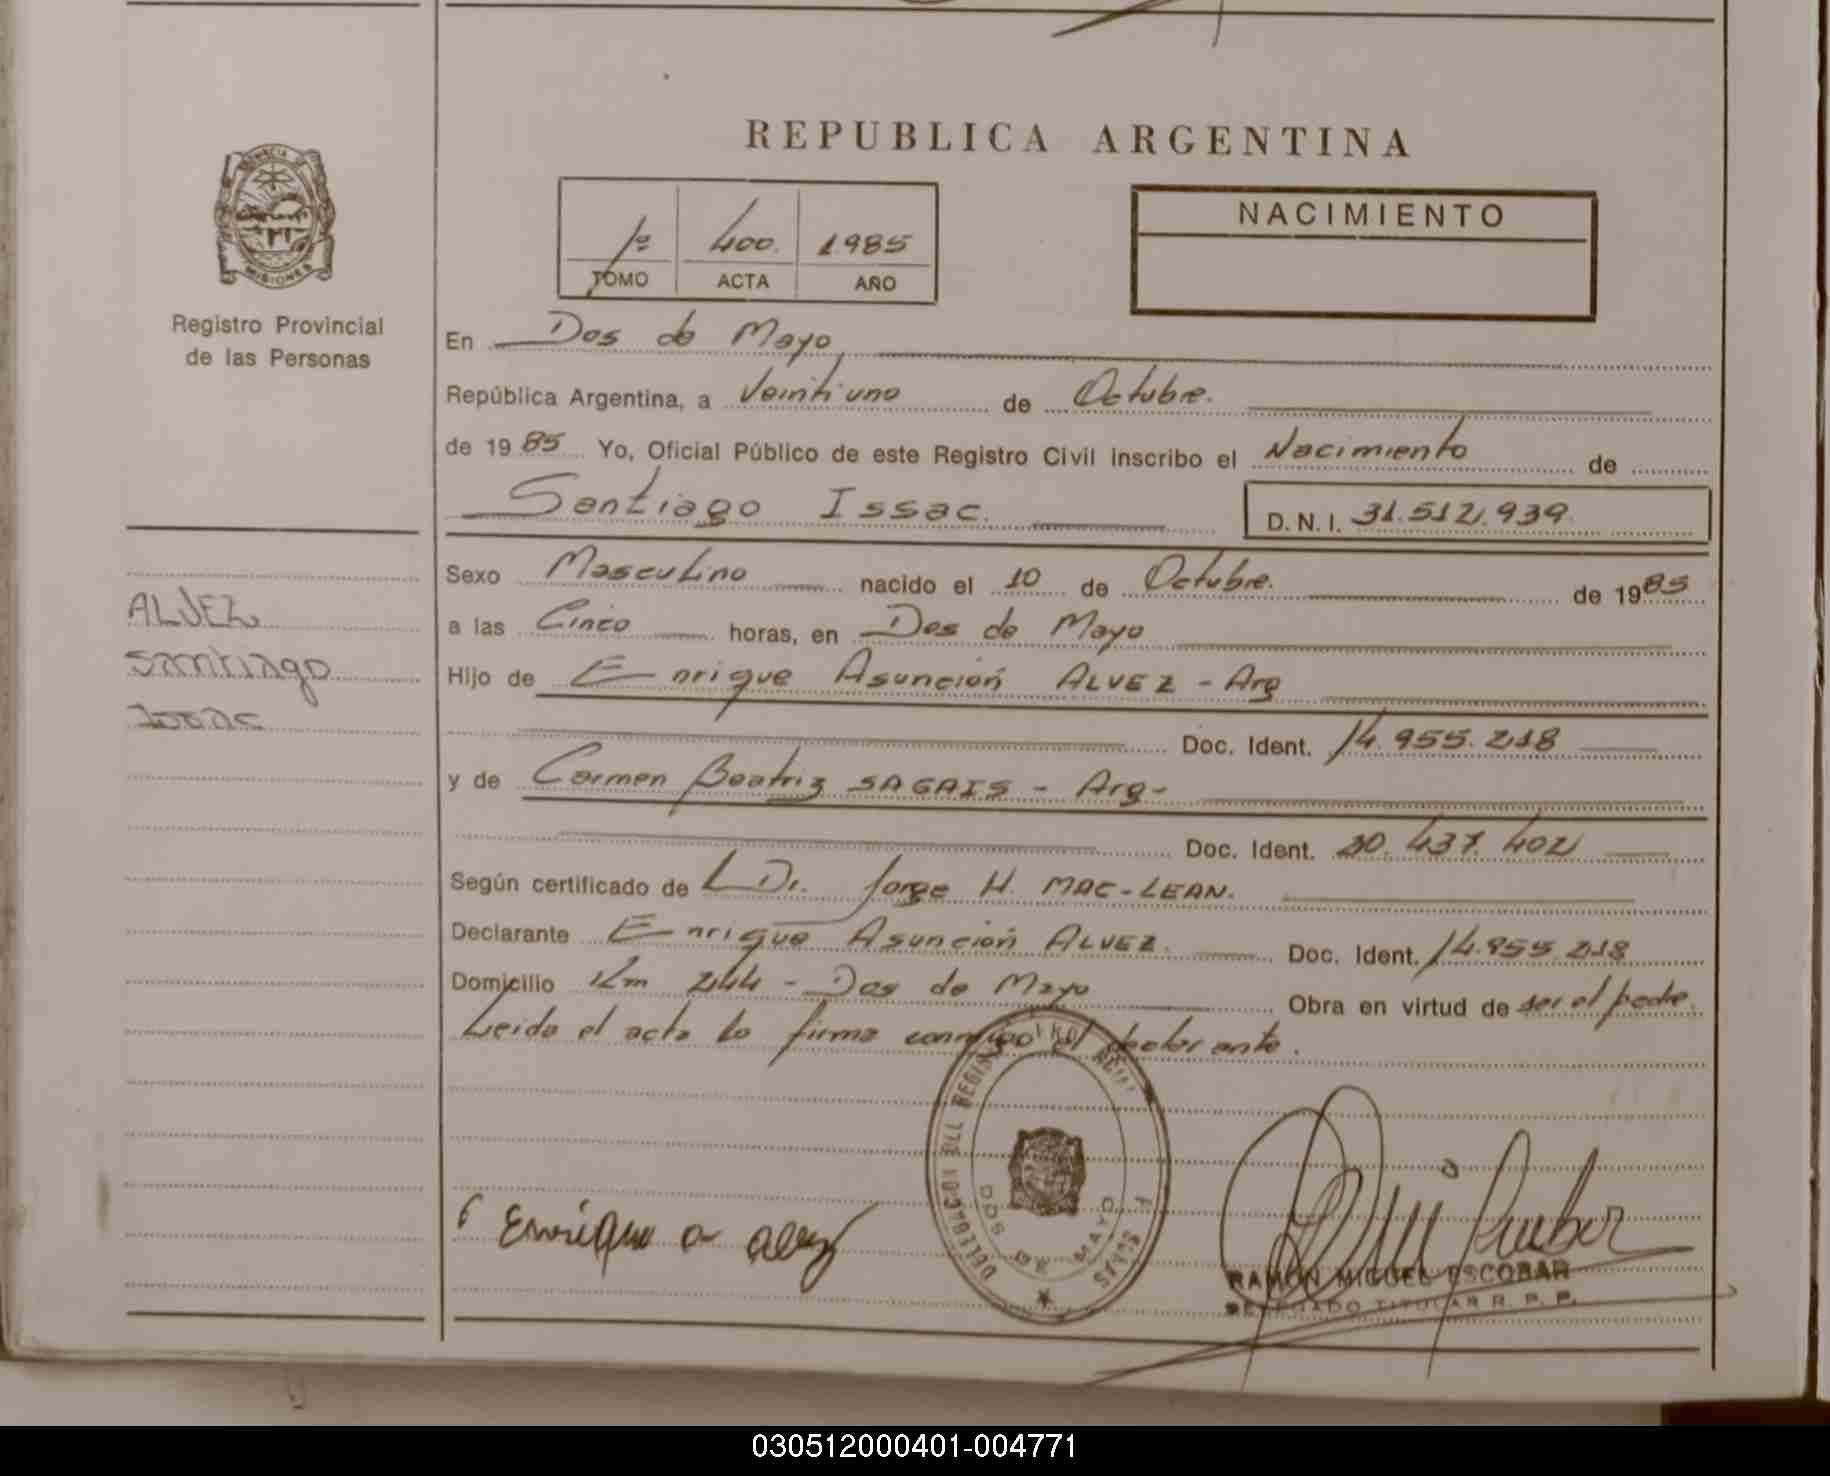 REPUBLICA ARGENTINA
PROVINCIA DE
MISIONES
Registro Provincial
de las Personas
1º 400. 1985
TOMO ACTA AÑO
NACIMIENTO
En Dos de Mayo
República Argentina, a Veintiuno de Octubre.
de 1985 Yo, Oficial Público de este Registro Civil inscribo el Nacimiento de
Santiago Issac.
D.N.I. 31.512.939
Sexo Masculino nacido el 10 de Octubre. de 1985
a las Cinco horas, en Dos de Mayo
Hijo de Enrique Asunción ALVEZ - Arg
Doc. Ident. 14.955.218
y de Carmen Beatriz SAGAIS - Arg-
Doc. Ident. 20.437.402
Según certificado de Dr. Jorge H. MAC-LEAN.
Declarante Enrique Asunción ALVEZ. Doc. Ident. 14.955.218
Domicilio Km 244 - Dos de Mayo Obra en virtud de ser el padre.
Leida el acta la firma conmigo el declarante.
ALVEZ
Santiago
Issac
DOS DE MAYO
Enrique a alvez
RAMON MIGUEL ESCOBAR
DELEGADO TITULAR R. P. P.
030512000401-004771